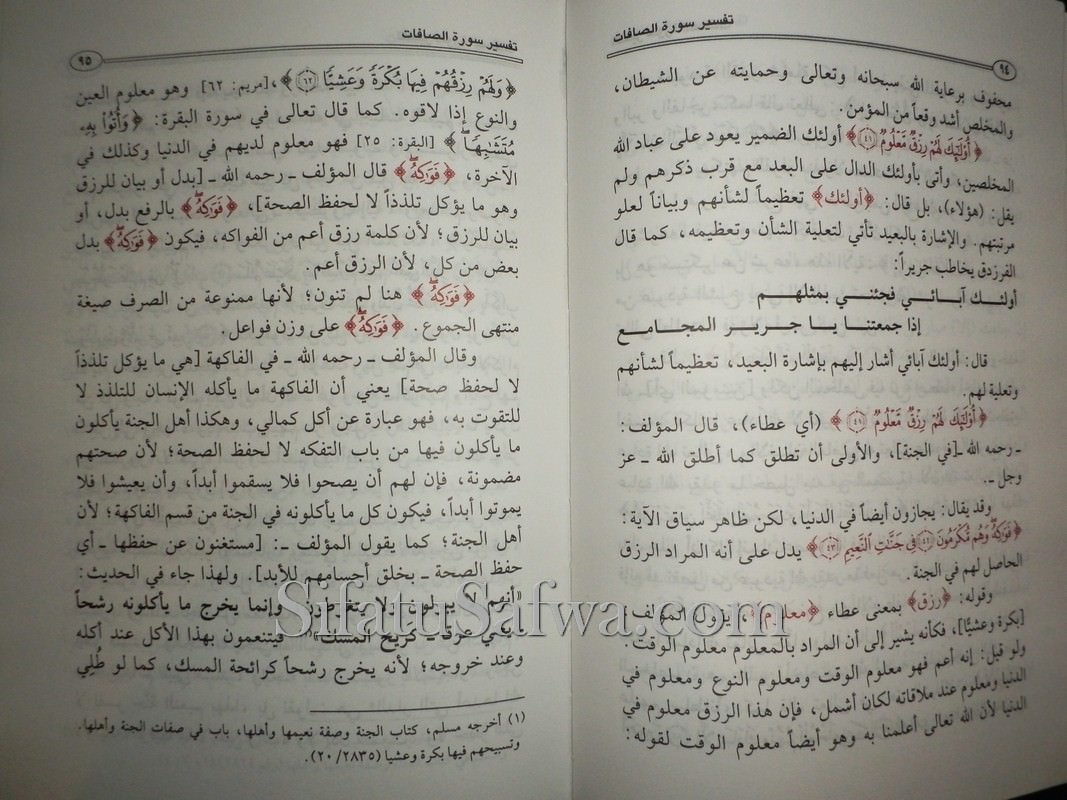 تفسير سورة الصافات
٩٤
محفوف برعاية الله سبحانه وتعالى وحمايته عن الشيطان،
والمخلص أشد وقعاً من المؤمن.
﴿أُوْلَٰٓئِكَ لَهُمْ رِزْقٌ مَّعْلُومٌ ۝٤١﴾ أولئك الضمير يعود على عباد الله
المخلصين، وأتى بأولئك الدال على البعد مع قرب ذكرهم ولم
يقل: (هؤلاء)، بل قال: ﴿أولئك﴾ تعظيماً لشأنهم وبياناً لعلو
مرتبتهم. والإشارة بالبعيد تأتي لتعلية الشأن وتعظيمه، كما قال
الفرزدق يخاطب جريراً:
أولئك آبائي فجئني بمثلهم
إذا جمعتنا يا جرير المجامع
قال: أولئك آبائي أشار إليهم بإشارة البعيد، تعظيماً لشأنهم
وتعلية لهم.
﴿أُوْلَٰٓئِكَ لَهُمْ رِزْقٌ مَّعْلُومٌ ۝٤١﴾ (أي عطاء)، قال المؤلف:
ـ رحمه الله ـ [في الجنة]، والأولى أن تطلق كما أطلق الله ـ عز
وجل ـ.
وقد يقال: يجازون أيضاً في الدنيا، لكن ظاهر سياق الآية:
﴿فَوَٰكِهُ وَهُم مُّكْرَمُونَ ۝٤٢ فِي جَنَّٰتِ ٱلنَّعِيمِ ۝٤٣﴾ يدل على أنه المراد الرزق
الحاصل لهم في الجنة.
وقوله: ﴿رزق﴾ بمعنى عطاء ﴿معلوم﴾، يقول المؤلف:
[بكرة وعشيًّا]، فكأنه يشير إلى أن المراد بالمعلوم معلوم الوقت.
ولو قيل: إنه أعم فهو معلوم الوقت ومعلوم النوع ومعلوم في
الدنيا ومعلوم عند ملاقاته لكان أشمل، فإن هذا الرزق معلوم في
الدنيا لأن الله تعالى أعلمنا به وهو أيضاً معلوم الوقت لقوله:
تفسير سورة الصافات
٩٥
﴿وَلَهُمْ رِزْقُهُمْ فِيهَا بُكْرَةً وَعَشِيًّا ۝٦٢﴾، [مريم: ٦٢] وهو معلوم العين
والنوع إذا لاقوه. كما قال تعالى في سورة البقرة: ﴿وَأُتُوا۟ بِهِۦ
مُتَشَٰبِهًا﴾ [البقرة: ٢٥] فهو معلوم لديهم في الدنيا وكذلك في
الآخرة، ﴿فَوَٰكِهُ﴾ قال المؤلف ـ رحمه الله ـ [بدل أو بيان للرزق
وهو ما يؤكل تلذذاً لا لحفظ الصحة]، ﴿فَوَٰكِهُ﴾ بالرفع بدل، أو
بيان للرزق؛ لأن كلمة رزق أعم من الفواكه، فيكون ﴿فَوَٰكِهُ﴾ بدل
بعض من كل، لأن الرزق أعم.
﴿فَوَٰكِهُ﴾ هنا لم تنون؛ لأنها ممنوعة من الصرف صيغة
منتهى الجموع. ﴿فَوَٰكِهُ﴾ على وزن فواعل.
وقال المؤلف ـ رحمه الله ـ في الفاكهة [هي ما يؤكل تلذذاً
لا لحفظ صحة] يعني أن الفاكهة ما يأكله الإنسان للتلذذ لا
للتقوت به، فهو عبارة عن أكل كمالي، وهكذا أهل الجنة يأكلون
ما يأكلون فيها من باب التفكه لا لحفظ الصحة؛ لأن صحتهم
مضمونة، فإن لهم أن يصحوا فلا يسقموا أبداً، وأن يعيشوا فلا
يموتوا أبداً، فيكون كل ما يأكلونه في الجنة من قسم الفاكهة؛ لأن
أهل الجنة؛ كما يقول المؤلف ـ: [مستغنون عن حفظها ـ أي
حفظ الصحة ـ بخلق أجسامهم للأبد]. ولهذا جاء في الحديث:
«أنهم لا يبولون ولا يتغوطون وإنما يخرج ما يأكلونه رشحاً
ـ يعني عرقاً ـ كريح المسك»(١) فيتنعمون بهذا الأكل عند أكله
وعند خروجه؛ لأنه يخرج رشحاً كرائحة المسك، كما لو طُلِي
(١) أخرجه مسلم، كتاب الجنة وصفة نعيمها وأهلها، باب في صفات الجنة وأهلها،
وتسبيحهم فيها بكرة وعشيا (٢٠/٢٨٣٥).
SifatuSafwa.com